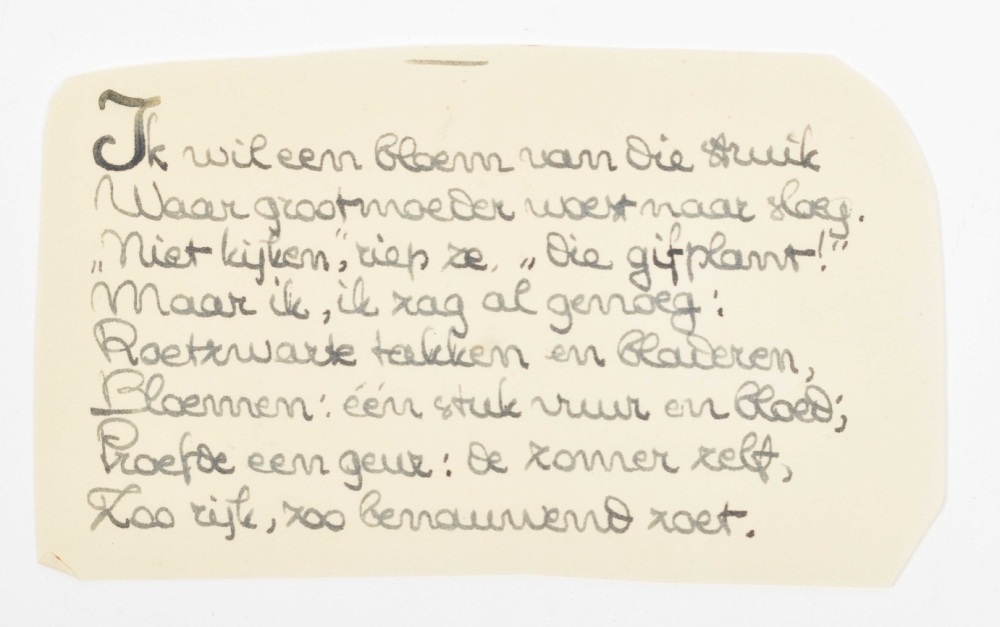 Ik wil een bloem van die struik
Waar grootmoeder woest naar sloeg.
„Niet kijken”, riep ze. „die gifplant!”
Maar ik, ik zag al genoeg:
Roetzwarte takken en bladeren,
Bloemen: één stuk vuur en bloed;
Proefde een geur: de zomer zelf,
Zoo rijk, zoo benauwend zoet.